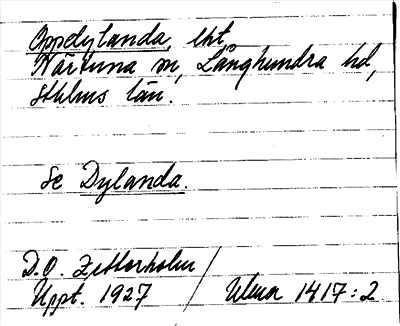 Oppdylanda, ägt
Närtuna sn, Långhundra hd,
Sthlms län.
Se Dylanda.
D.O. Zetterholm
Uppt. 1927 / Ulma 1417:2